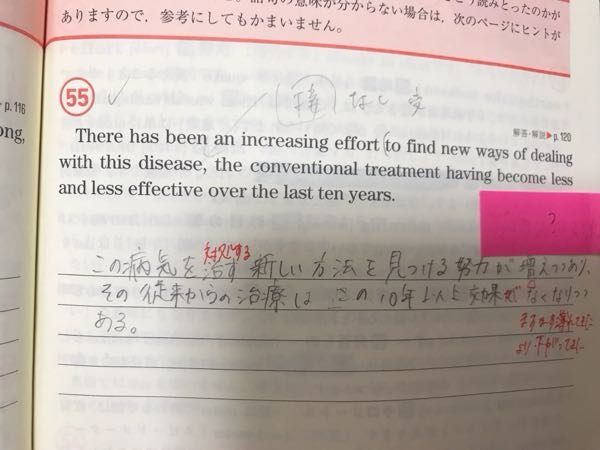 ありますので，参考にしてもかまいません。語句の意味が分からない場合は，次のページにヒントが
p.116
ong,
55
接 なし
解答・解説▶p.120
There has been an increasing effort to find new ways of dealing
with this disease, the conventional treatment having become less
and less effective over the last ten years.
?
対処する
この病気を治す新しい方法を見つける努力が増えつつあり、
その従来からの治療は この10年以上効果がなくなりつつ
ある。